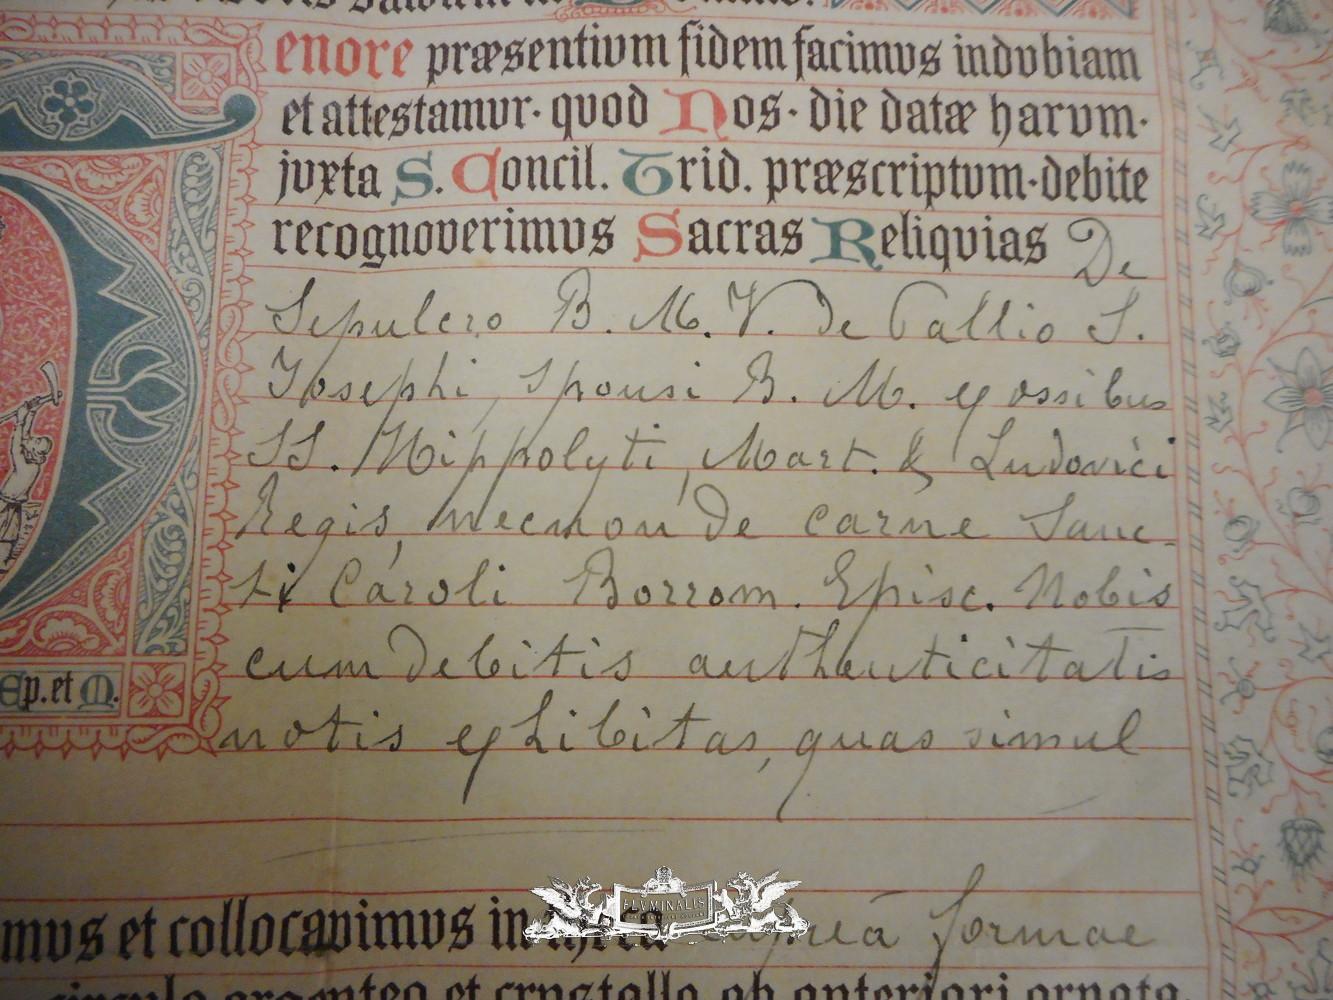 enore præsentivm fidem facimvs indvbiam
et attestamvr· qvod Nos· die datæ harvm·
jvxta S. Concil. Trid. præscriptvm·debite
recognoverimvs Sacras Reliqvias De
Sepulcro B. M. V. de Pallio S.
Josephi, Sponsi B. M. ex ossibus
SS. Hippolyti, Mart. & Ludovici
Regis, necnon de carne Sanc-
ti Caroli Borrom. Episc. Nobis
cum debitis authenticitatis
notis exhibitas, quas simul
Ep. et M.
mvs et collocavimvs in theca formae
circvlo argenteo et crystallo ab anteriori ornata
ILLUMINALIS